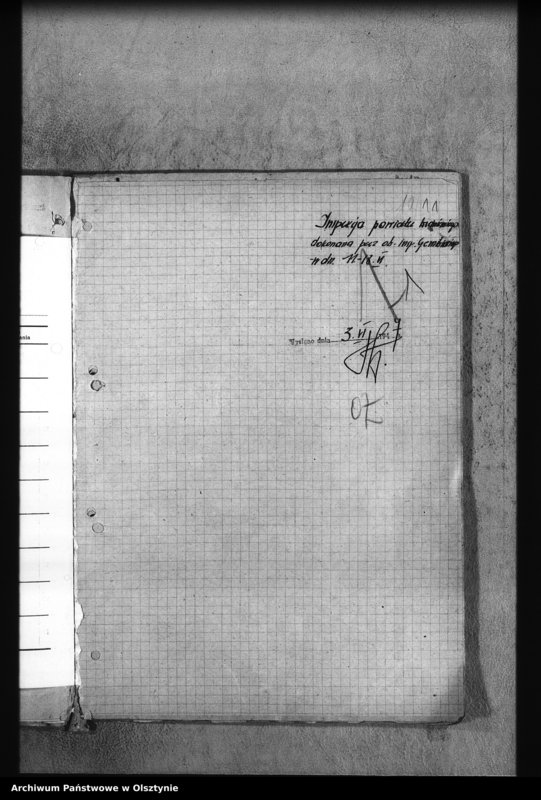 11
Inspekcja powiatu
dokonana przez ob. insp.
w dn. 11-18. VI.
Wysłano dnia 3. VI 7
OZ
Archiwum Państwowe w Olsztynie